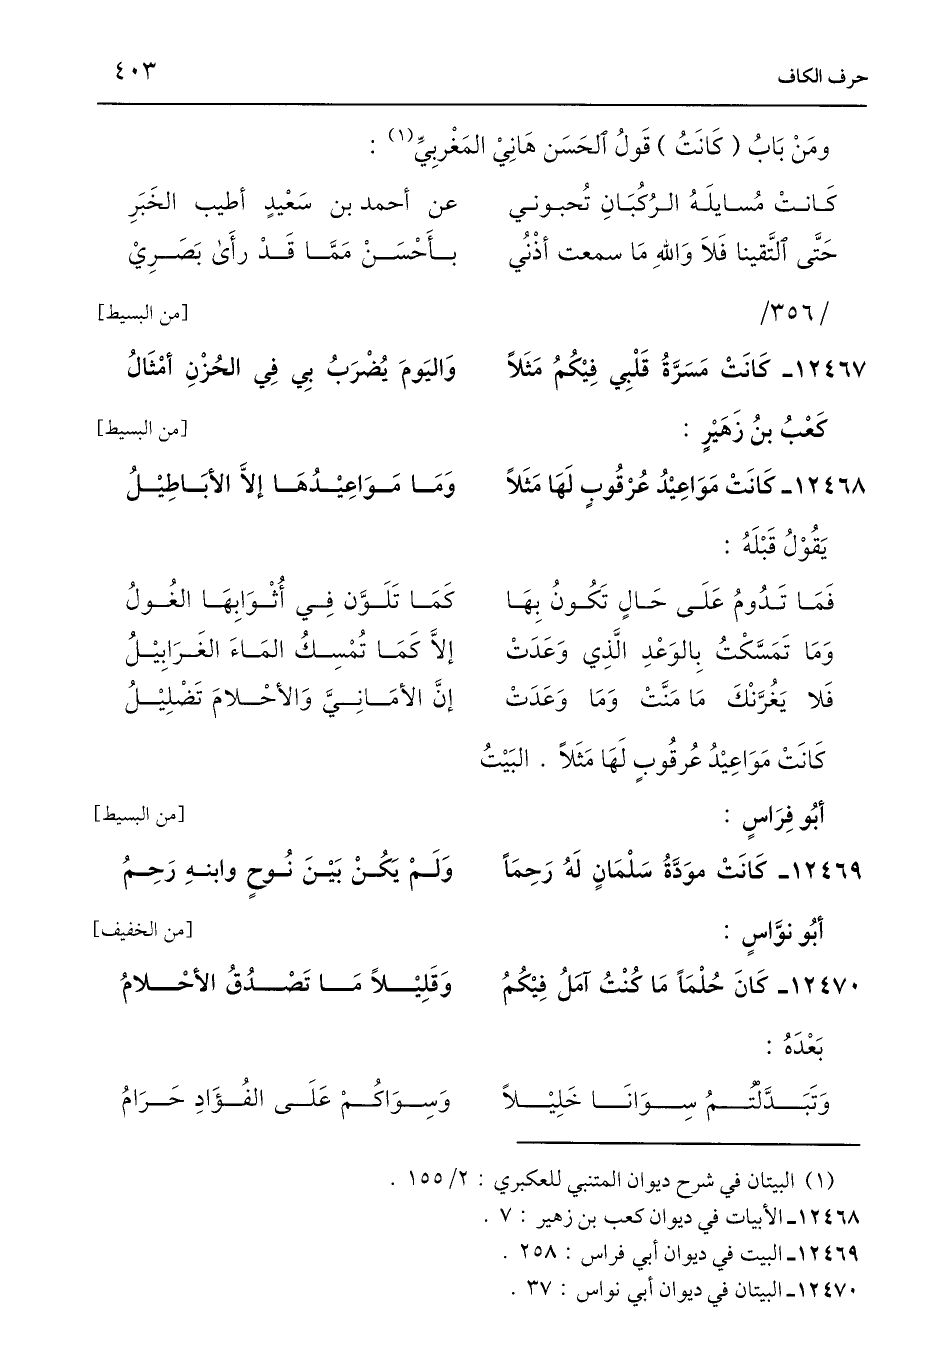 حرف الكاف ٤٠٣
ومَنْ بَابُ ( كَانَتُ ) قَولُ ٱلحَسَن هَانِيْ المَغْرِبيِّ(١) :
كَـانـتْ مُسـايلَـهُ الـرُكْبَـانِ تُحبـونـي عن أحمـد بن سَعْيدٍ أطيب الخَبَرِ
حَتَّى ٱلتَّقينا فَلاَ وَاللهِ مَا سمعت أذْنُي بـأَحْسَـنْ مَمَّـا قَـدْ رأَىٰ بَصَـرِيْ
/ ٣٥٦/ [من البسيط]
١٢٤٦٧ـ كَانَتْ مَسَرَّةُ قَلْبِي فِيْكُمُ مَثَلاً وَاليَومَ يُضْرَبُ بِي فِي الحُزْنِ أمْثَالُ
كَعْبُ بنُ زَهَيْرٍ : [من البسيط]
١٢٤٦٨ـ كَانَتْ مَوَاعِيْدُ عُرْقُوبٍ لَهَا مَثَلاً وَمَـا مَـوَاعِيْـدُهَـا إلاَّ الأبَـاطِيْـلُ
يَقُوْلُ قَبْلَهُ :
فَمَـا تَـدُومُ عَلَـى حَـالٍ تَكُـونُ بِهَـا كَمَـا تَلَـوَّن فِـي أثْـوَابِهَـا الغُـولُ
وَمَا تَمَسَّكْتُ بِالوَعْدِ الَّذِي وَعَدَتْ إلاَّ كَمَـا تُمْسِـكُ المَـاءَ الغَـرَابِيْـلُ
فَلا يَغُرَّنْكَ مَا مَنَّتْ وَمَا وَعَدَتْ إنَّ الأمَـانِـيَّ وَالأحْـلامَ تَضْلِيْـلُ
كَانَتْ مَوَاعِيْدُ عُرقُوبٍ لَهَا مَثَلاً . البَيْتُ
أبُو فِرَاسٍ : [من البسيط]
١٢٤٦٩ـ كَانَتْ مودَّةُ سَلْمَانٍ لَهُ رَحِمَاً وَلَـمْ يَكُـنْ بَيْـنَ نُـوحٍ وابنـهِ رَحِـمُ
أبُو نوَّاسٍ : [من الخفيف]
١٢٤٧٠ـ كَانَ حُلْمَاً مَا كُنْتُ آمَلُ فِيْكُمُ وَقَلِيْـلاً مَـا تَصْـدُقُ الأحْـلامُ
بَعْدَهُ :
وَتَبَـدَّلْتُـمُ سِـوَانَـا خَلِيْـلاً وَسِـوَاكُـمْ عَلَـى الفُـؤَادِ حَـرَامُ
(١) البيتان في شرح ديوان المتنبي للعكبري : ٢/ ١٥٥ .
١٢٤٦٨ـ الأبيات في ديوان كعب بن زهير : ٧ .
١٢٤٦٩ـ البيت في ديوان أبي فراس : ٢٥٨ .
١٢٤٧٠ـ البيتان في ديوان أبي نواس : ٣٧ .